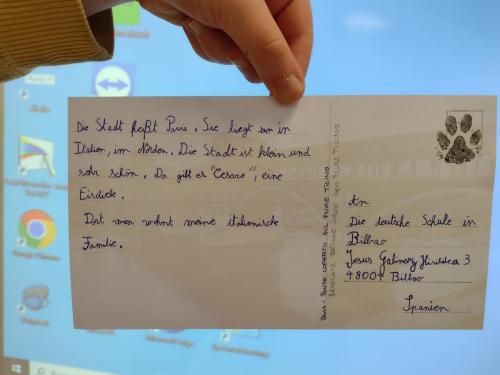 Die Stadt heißt Pavia. Sie liegt an in
Italien, im Norden. Die Stadt ist klein und
sehr schön. Da gibt es "Cesare", eine
Eisdiele.
Dort wohnt meine italienische
Familie.
PAVIA - PONTE COPERTO SUL FIUME TICINO
BEDECKTE BRÜCKE ÜBER DEN FLUSS TICINO
An
Die deutsche Schule in
Bilbao
Jesus 3
48004 Bilbao
Spanien
Google Chrome